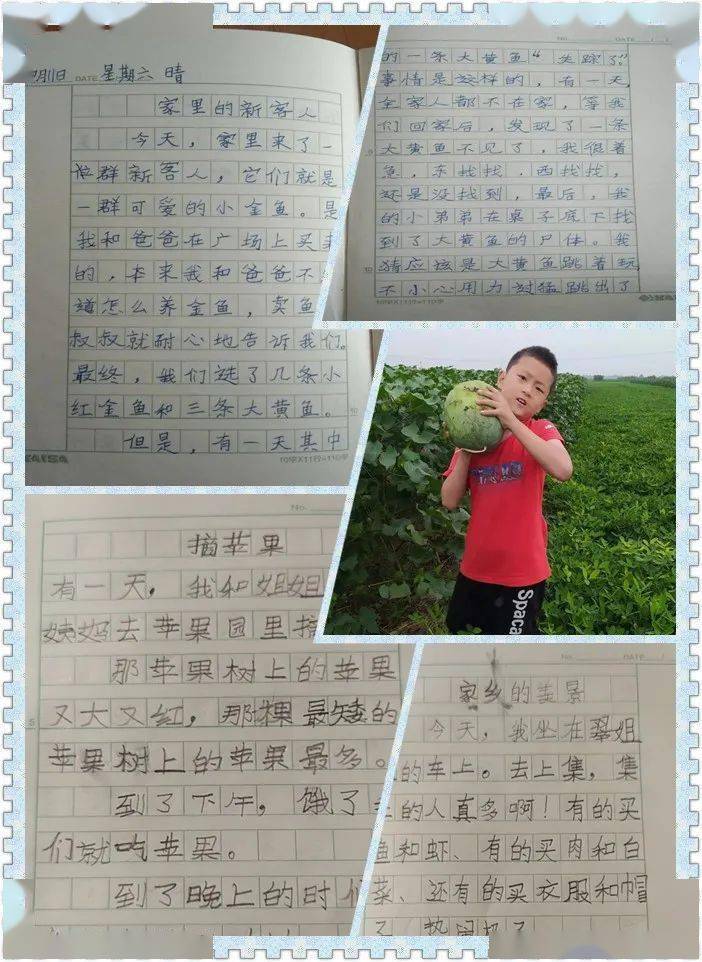 月11日 DATE 星期六 晴
家里的新客人
今天，家里来了一
群新客人，它们就是
一群可爱的小金鱼。是
我和爸爸在广场上买来
的，本来我和爸爸不
道怎么养金鱼，卖鱼
叔叔就耐心地告诉我们。
最终，我们选了几条小
红金鱼和三条大黄鱼。
但是，有一天其中
10字X11行=110字
DATE
的一条大黄鱼“失踪了”。
事情是这样的，有一天，
全家人都不在家，等我
们回家后，发现了一条
大黄鱼不见了，我很着
急，东找找，西找找，
还是没找到，最后，我
的小弟弟在桌子底下找
到了大黄鱼的尸体。我
猜应该是大黄鱼跳着玩，
不小心用力过猛跳出了
10字X11行=110字
Spaca
No.
摘苹果
有一天，我和姐姐
姨妈去苹果园里摘
那苹果树上的苹果
又大又红，那棵最矮的
苹果树上的苹果最多。
到了下午，饿了
们就吃苹果。
到了晚上的时
No. DATE
家乡的美景
今天，我坐在翠姐
的车上。去上集，集
上的人真多啊！有的买
鱼和虾、有的买肉和白
菜、还有的买衣服和帽